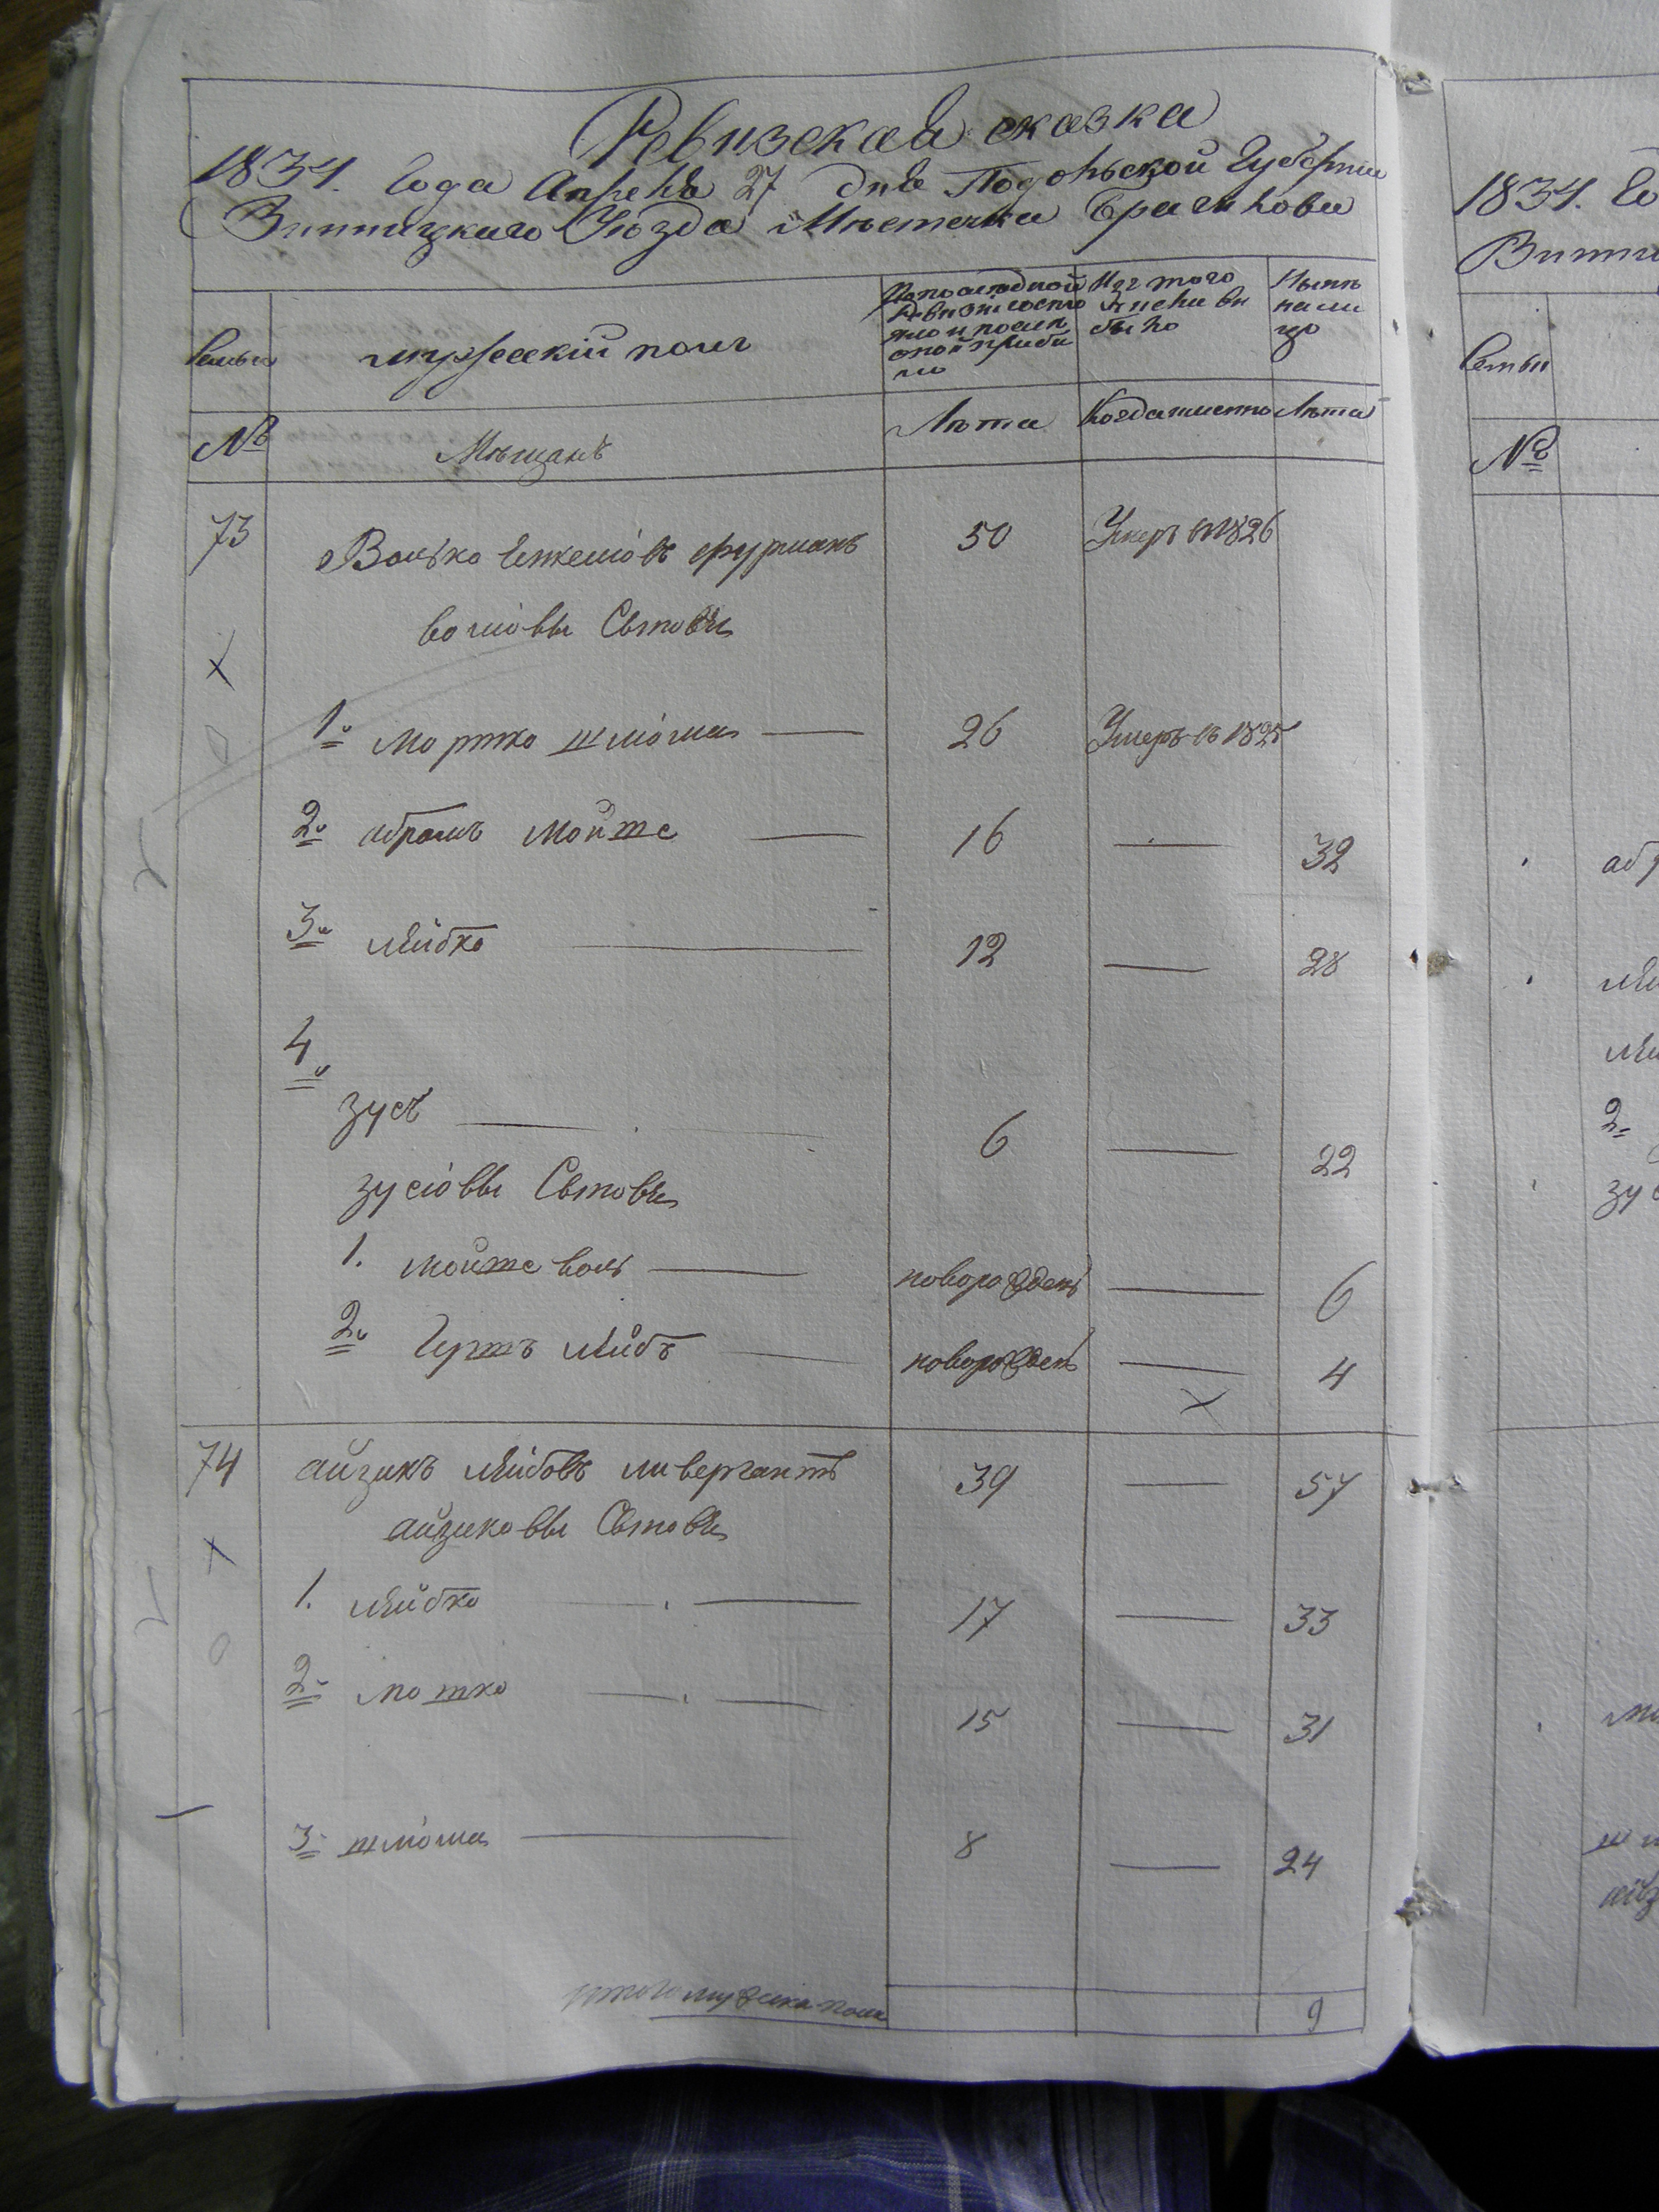 Ревизская сказка
1834. Года Апреля 27 дня Подольской Губернии
Винницкаго Уѣзда Мѣстечка Браилова
Семьи
мужеский полъ
По последной ревизіи состояло и после оной прибыло
Изъ того числа выбыло
Нынѣ на лицо
№
Мѣщанъ
Лѣта
Когда именно
Лѣта
73
Волько Ицкеліовъ фурманъ
50
Умеръ в 1826
воліовы Сыновья
1. Мортко шліома
26
Умеръ въ 1825
2. абрамъ Мойше
16
32
3. Лейбко
12
28
4.
зусъ
6
22
зусіовы Сыновья
1. Мойше воль
новорожденъ
6
2. Гершъ Лейбъ
новорожденъ
4
74
айзикъ Лейбовъ ливергантъ
39
57
айзиковы Сыновья
1. Лейбко
17
33
2. Мошко
15
31
3. шліома
8
24
Итого мужеска пола
9
1834. Го
Винни
Семьи
№
абр
Ле
2.
зус